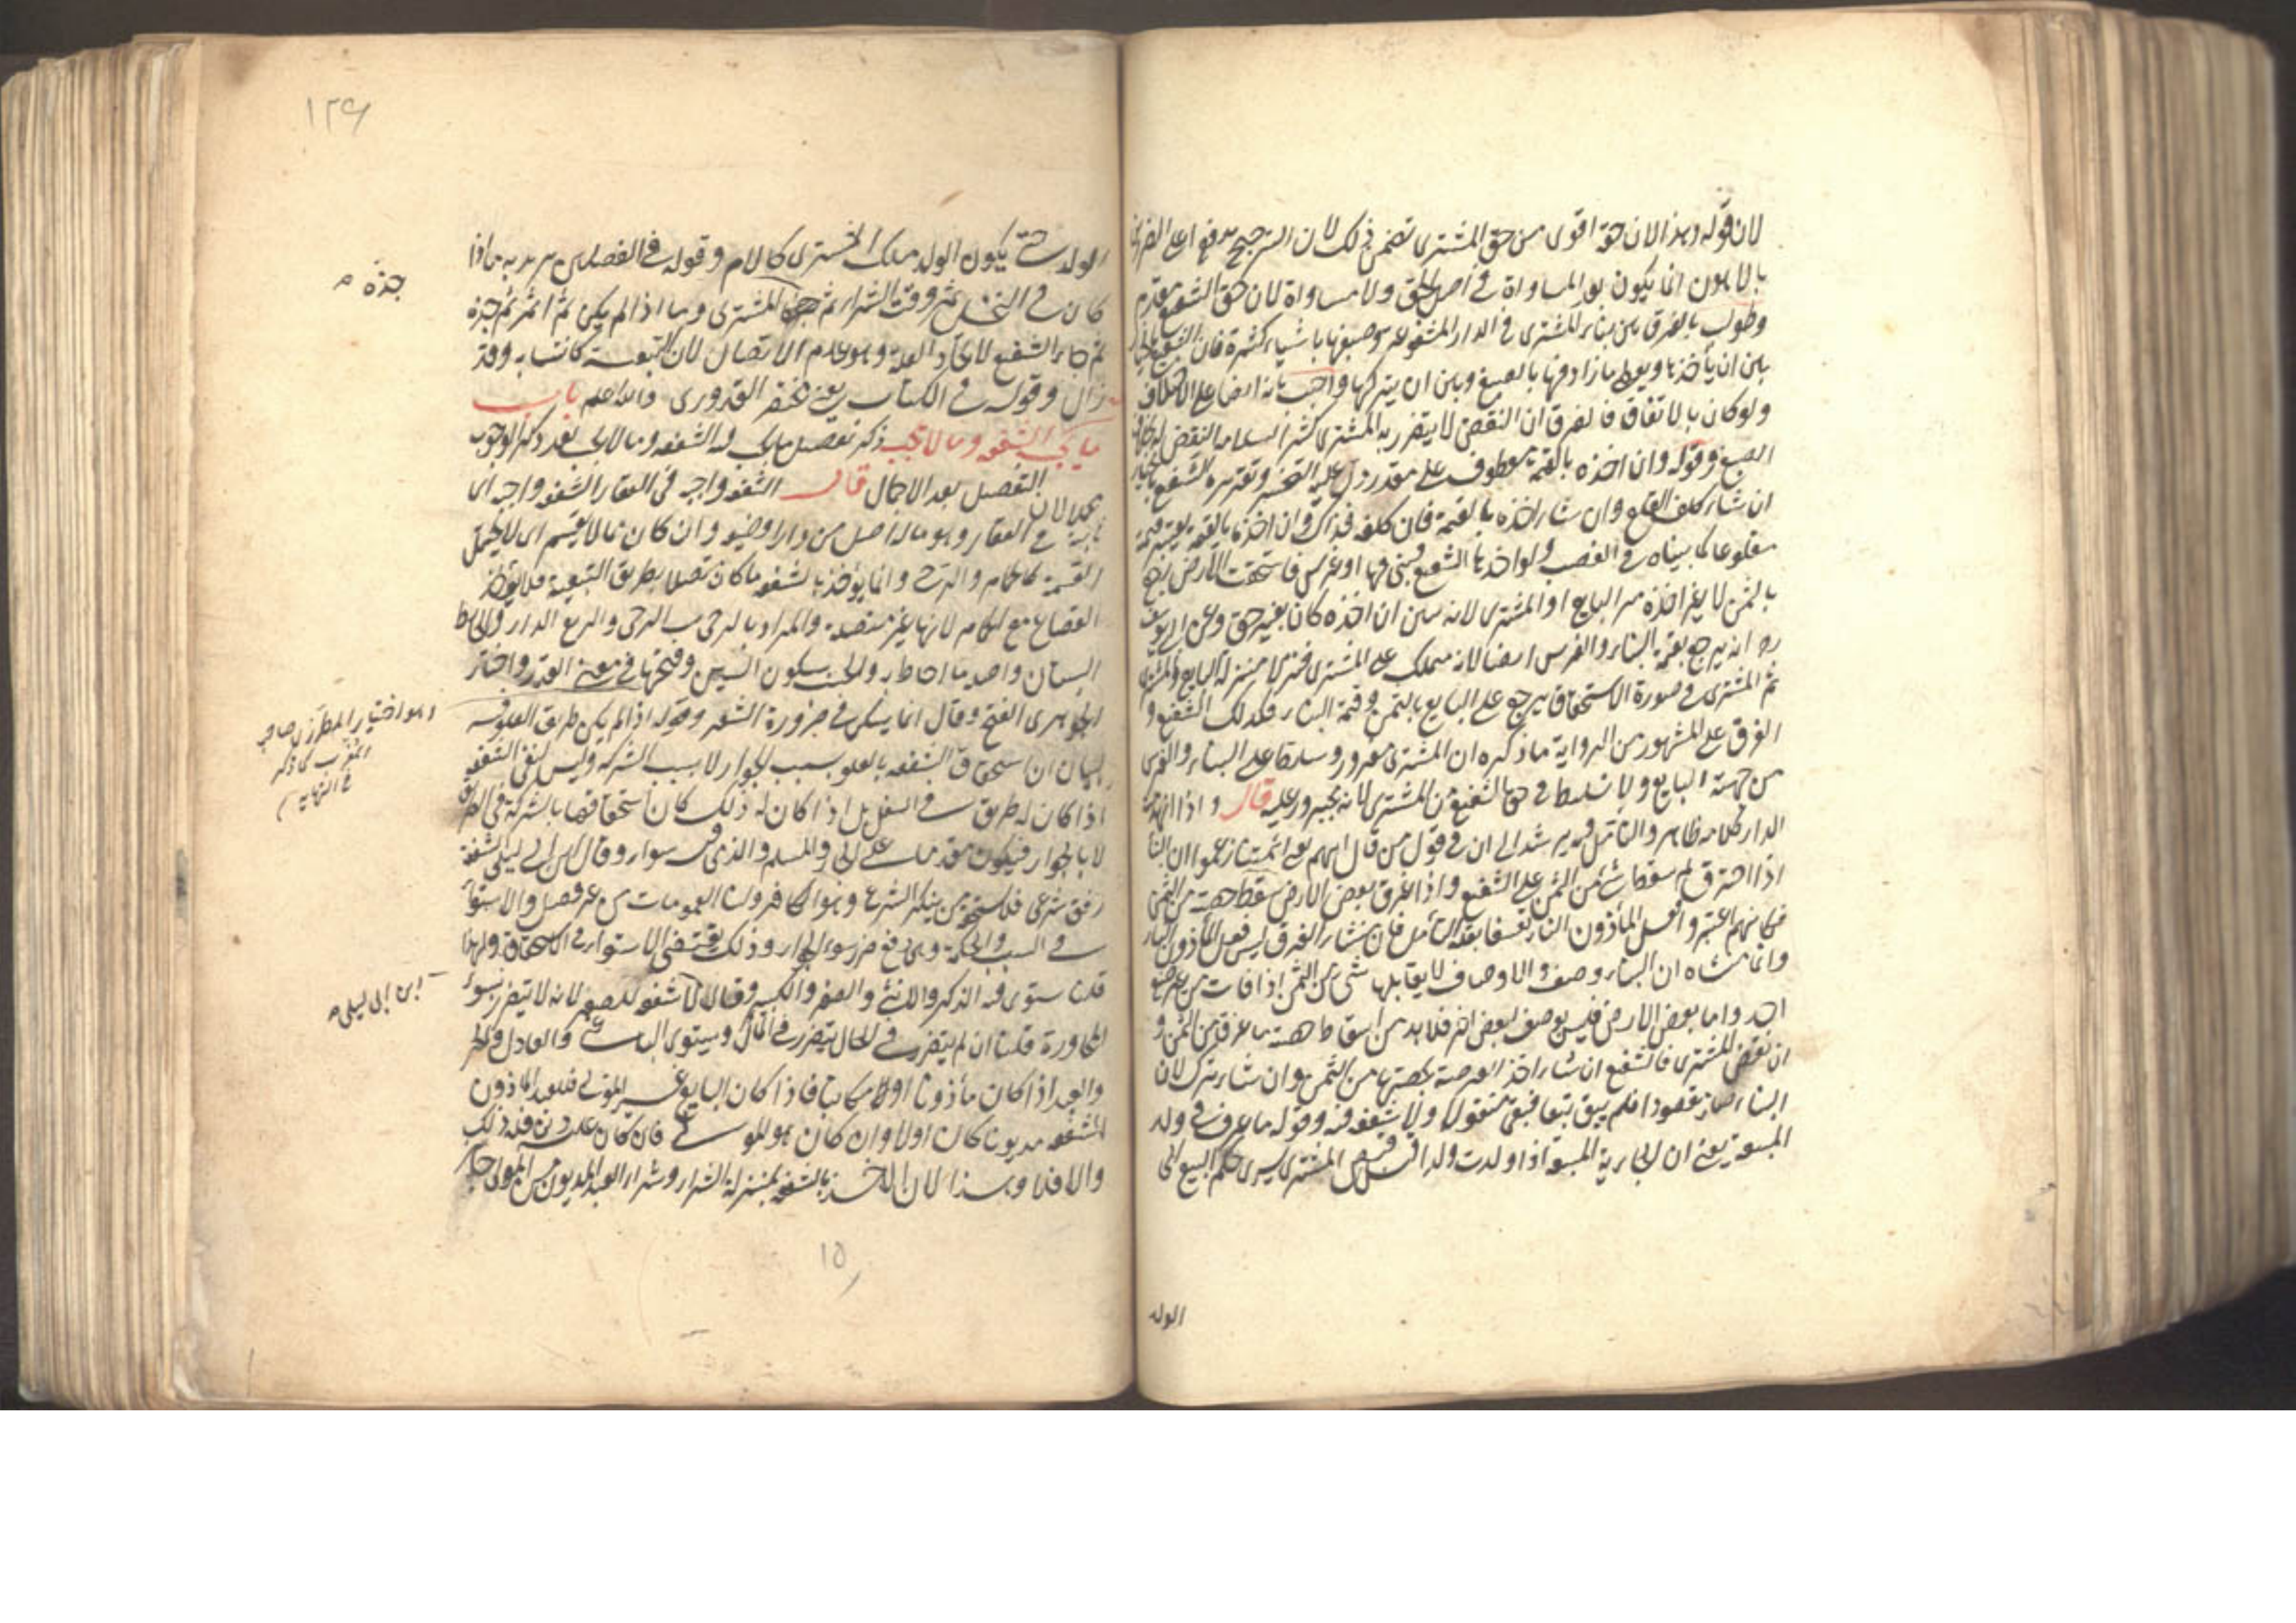 لان قوله وهذا لان حقه اقوى من حق المشترى تضمن ذلك لان الترجيح بدفع اعلى الضررين
بالاهون انما يكون بعد المساواة فى اصل الحق ولا مساواة لان حق الشفيع مقدم
وطولب بالفرق بين بناء المشترى فى الدار المشفوعة وصبغها باشياء كثيرة فان الشفيع بالخيار
بين ان يأخذها ويعطى ما زاد فيها بالصبغ وبين ان يتركها واجيب بانه ايضا على الاختلاف
ولو كان بالاتفاق فالفرق ان النقض لا يتضرر به المشترى كثيرا لسلامة النقض له بخلاف
الصبغ وقوله وان اخذه بالقيمة معطوف على مقدر دل عليه التخيير وتقديره الشفيع بالخيار
ان شاء كلفه القلع وان شاء اخذه بالقيمة فان كلفه فذاك وان اخذها بالقيمة يعتبر قيمته
مقلوعا كما بيناه فى الغصب ولو اخذها الشفيع فبنى فيها او غرس فاستحقت الارض رجع
بالثمن لا غير اخذه من البايع او المشترى لانه تبين ان اخذه كان بغير حق وعن ابى يوسف
رح انه يرجع بقيمة البناء والغرس ايضا لانه متملك على المشترى فنزلا منزلة البايع والمشترى
ثم المشترى فى صورة الاستحقاق يرجع على البايع بالثمن وقيمة البناء فكذلك الشفيع و
الفرق على المشهور من الرواية ما ذكره ان المشترى مغرور ومسلط على البناء والغرس
من جهة البايع ولا تسليط فى حق الشفيع من المشترى لانه مجبور عليه قال واذا انهدمت
الدار كلامه ظاهر والتأمل فيه يرشد الى ان فى قول من قال انهم يعنى ائمتنا زعموا ان البناء
اذا احترق لم يسقط شئ من الثمن على الشفيع واذا غرق بعض الارض سقط حصته من الثمن
فكانهم اعتبروا فعل المأذون النار تعسفا بقلة التأمل فان منشاء الفرق ليس فعل المأذون النار
وانما منشاه ان البناء وصف والاوصاف لا يقابلها شئ من الثمن اذا فات من غير صنع
احد واما بعض الارض فليس بوصف لبعض اخر فلا بد من اسقاط حصة ما غرق من الثمن و
ان نقض المشترى فالشفيع ان شاء اخذ العرصة بحصتها من الثمن وان شاء ترك لان
البناء صار مقصودا فلم يبق تبعا فبقى منقولا ولا شفعة فيه وقوله ما عرف فى ولد
المبيعة يعنى ان الجارية المبيعة اذا ولدت ولدا قبل قبض المشترى يسرى حكم البيع الى
الولد
١٢٩
الولد حتى يكون الولد ملك المشترى كالام وقوله فى الفصلين يريد به ما اذا
كان فى النخل ثمر وقت الشراء ثم جذه المشترى وما اذا لم يكن ثم اثمر ثم جذه
ثم جاء الشفيع لاتحاد العلة وهو عدم الاتصال لان التبعية كانت به وقد
زال وقوله فى الكتاب يعنى مختصر القدورى والله اعلم باب
ما يجب الشفعة وما لا يجب ذكر تفصيل ما يجب فيه الشفعة وما لا يجب بعد ذكر الوجوب
مجملا لان التفصيل بعد الاجمال قال الشفعة واجبة فى العقار الشفعة واجبة اى
ثابتة فى العقار وهو ماله اصل من دار او ضيعة وان كان مما لا يقسم اى لا يحتمل
القسمة كالحمام والرحى وانما يؤخذ بالشفعة ما كان متصلا بطريق التبعية فلا يؤخذ
القصاع مع الحمام لانها غير متصلة والمراد بالرحى بيت الرحى والربع الدار والحائط
البستان واصله ما احاط به والحسب بسكون السين وفتحها فى معنى القدر واختار
الجوهرى الفتح وقال انما يسكن فى ضرورة الشعر وقوله اذا لم يكن طريق العلو فيه
لبيان ان استحقاق الشفعة بالعلو بسبب الجوار لا بسبب الشركة وليس لنفى الشفعة
اذا كان له طريق فى السفل بل اذا كان له ذلك كان استحقاقها بالشركة فى الطريق
لا بالجوار فيكون مقدما على الجار والمسلم والذمى سواء وقال ابن ابى ليلى الشفعة
رفق شرعى فلا يستحقه من ينكر الشرع وهو الكافر ولنا العمومات من غير فصل والاستواء
فى السبب والحكمة وهى دفع ضرر سوء الجوار وذلك يقتضى الاستواء فى الاستحقاق ولهذا
قلنا يستوى فيه الذكر والانثى والصغير والكبير وقال لا شفعة للصغير لانه لا يتضرر بسوء
المجاورة قلنا ان لم يتضرر فى الحال يتضرر فى المآل ويستوى الباغى والعادل والحر
والعبد اذا كان مأذونا او مكاتبا فاذا كان البايع غير المولى فللعبد المأذون
الشفعة مديونا كان اولا وان كان هو المولى فان كان عليه دين فله ذلك
والا فلا وهذا لان الاخذ بالشفعة بمنزلة الشراء وشراء العبد المديون من المولى جائز
جذه م
وهو اختيار المطرزى صاحب
المغرب كما ذكر
فى النهاية
ابن ابى ليلى م
١٥